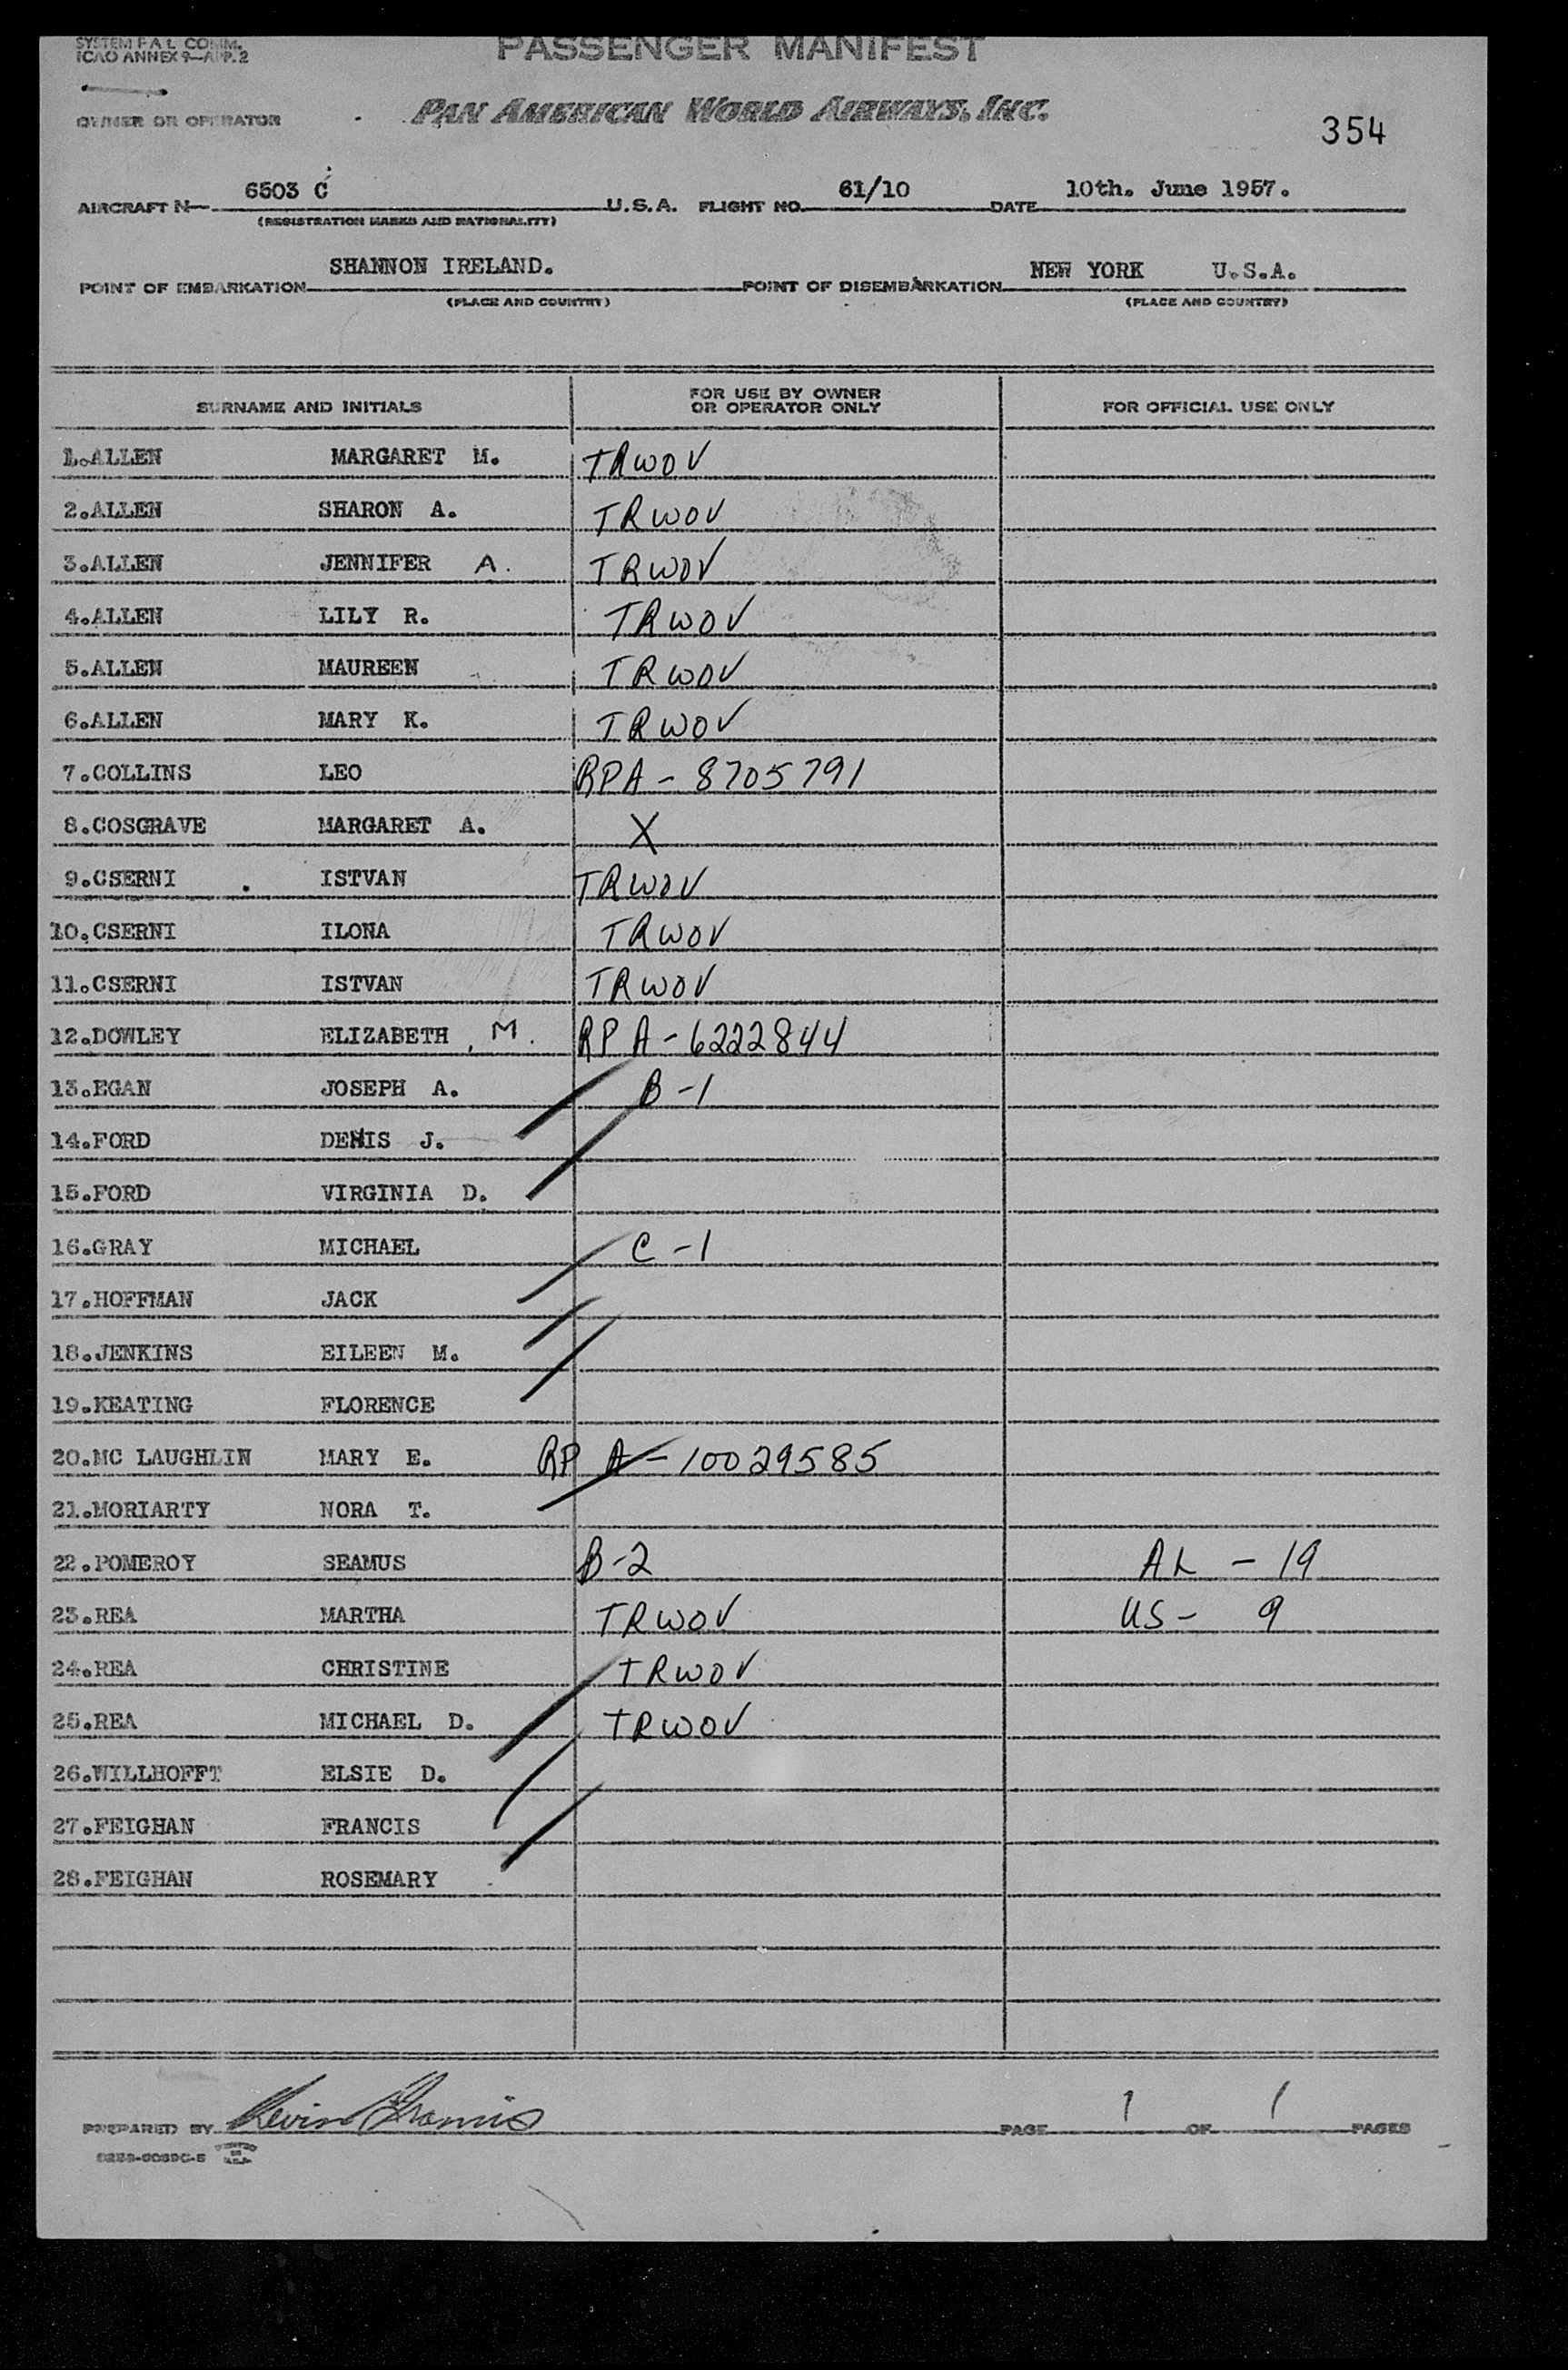 SYSTEM F A L COMM.
ICAO ANNEX 9—APP. 2
PASSENGER MANIFEST
OWNER OR OPERATOR
PAN AMERICAN WORLD AIRWAYS, INC.
354
AIRCRAFT N— 6503 C U.S.A. FLIGHT NO. 61/10 DATE 10th. June 1957.
(REGISTRATION MARKS AND NATIONALITY)
POINT OF EMBARKATION SHANNON IRELAND. POINT OF DISEMBARKATION NEW YORK U.S.A.
(PLACE AND COUNTRY) (PLACE AND COUNTRY)
SURNAME AND INITIALS FOR USE BY OWNER OR OPERATOR ONLY FOR OFFICIAL USE ONLY
1.ALLEN MARGARET M. TRWOV
2.ALLEN SHARON A. TRWOV
3.ALLEN JENNIFER A. TRWOV
4.ALLEN LILY R. TRWOV
5.ALLEN MAUREEN TRWOV
6.ALLEN MARY K. TRWOV
7.COLLINS LEO RPA-8705791
8.COSGRAVE MARGARET A. X
9.CSERNI ISTVAN TRWOV
10.CSERNI ILONA TRWOV
11.CSERNI ISTVAN TRWOV
12.DOWLEY ELIZABETH, M. RP A-6222844
13.EGAN JOSEPH A. B-1
14.FORD DENIS J.
15.FORD VIRGINIA D.
16.GRAY MICHAEL C-1
17.HOFFMAN JACK
18.JENKINS EILEEN M.
19.KEATING FLORENCE
20.MC LAUGHLIN MARY E. RP A-10029585
21.MORIARTY NORA T.
22.POMEROY SEAMUS B-2 AL - 19
23.REA MARTHA TRWOV US- 9
24.REA CHRISTINE TRWOV
25.REA MICHAEL D. TRWOV
26.WILLHOFFT ELSIE D.
27.FEIGHAN FRANCIS
28.FEIGHAN ROSEMARY
PREPARED BY Kevin PAGE 1 OF 1 PAGES